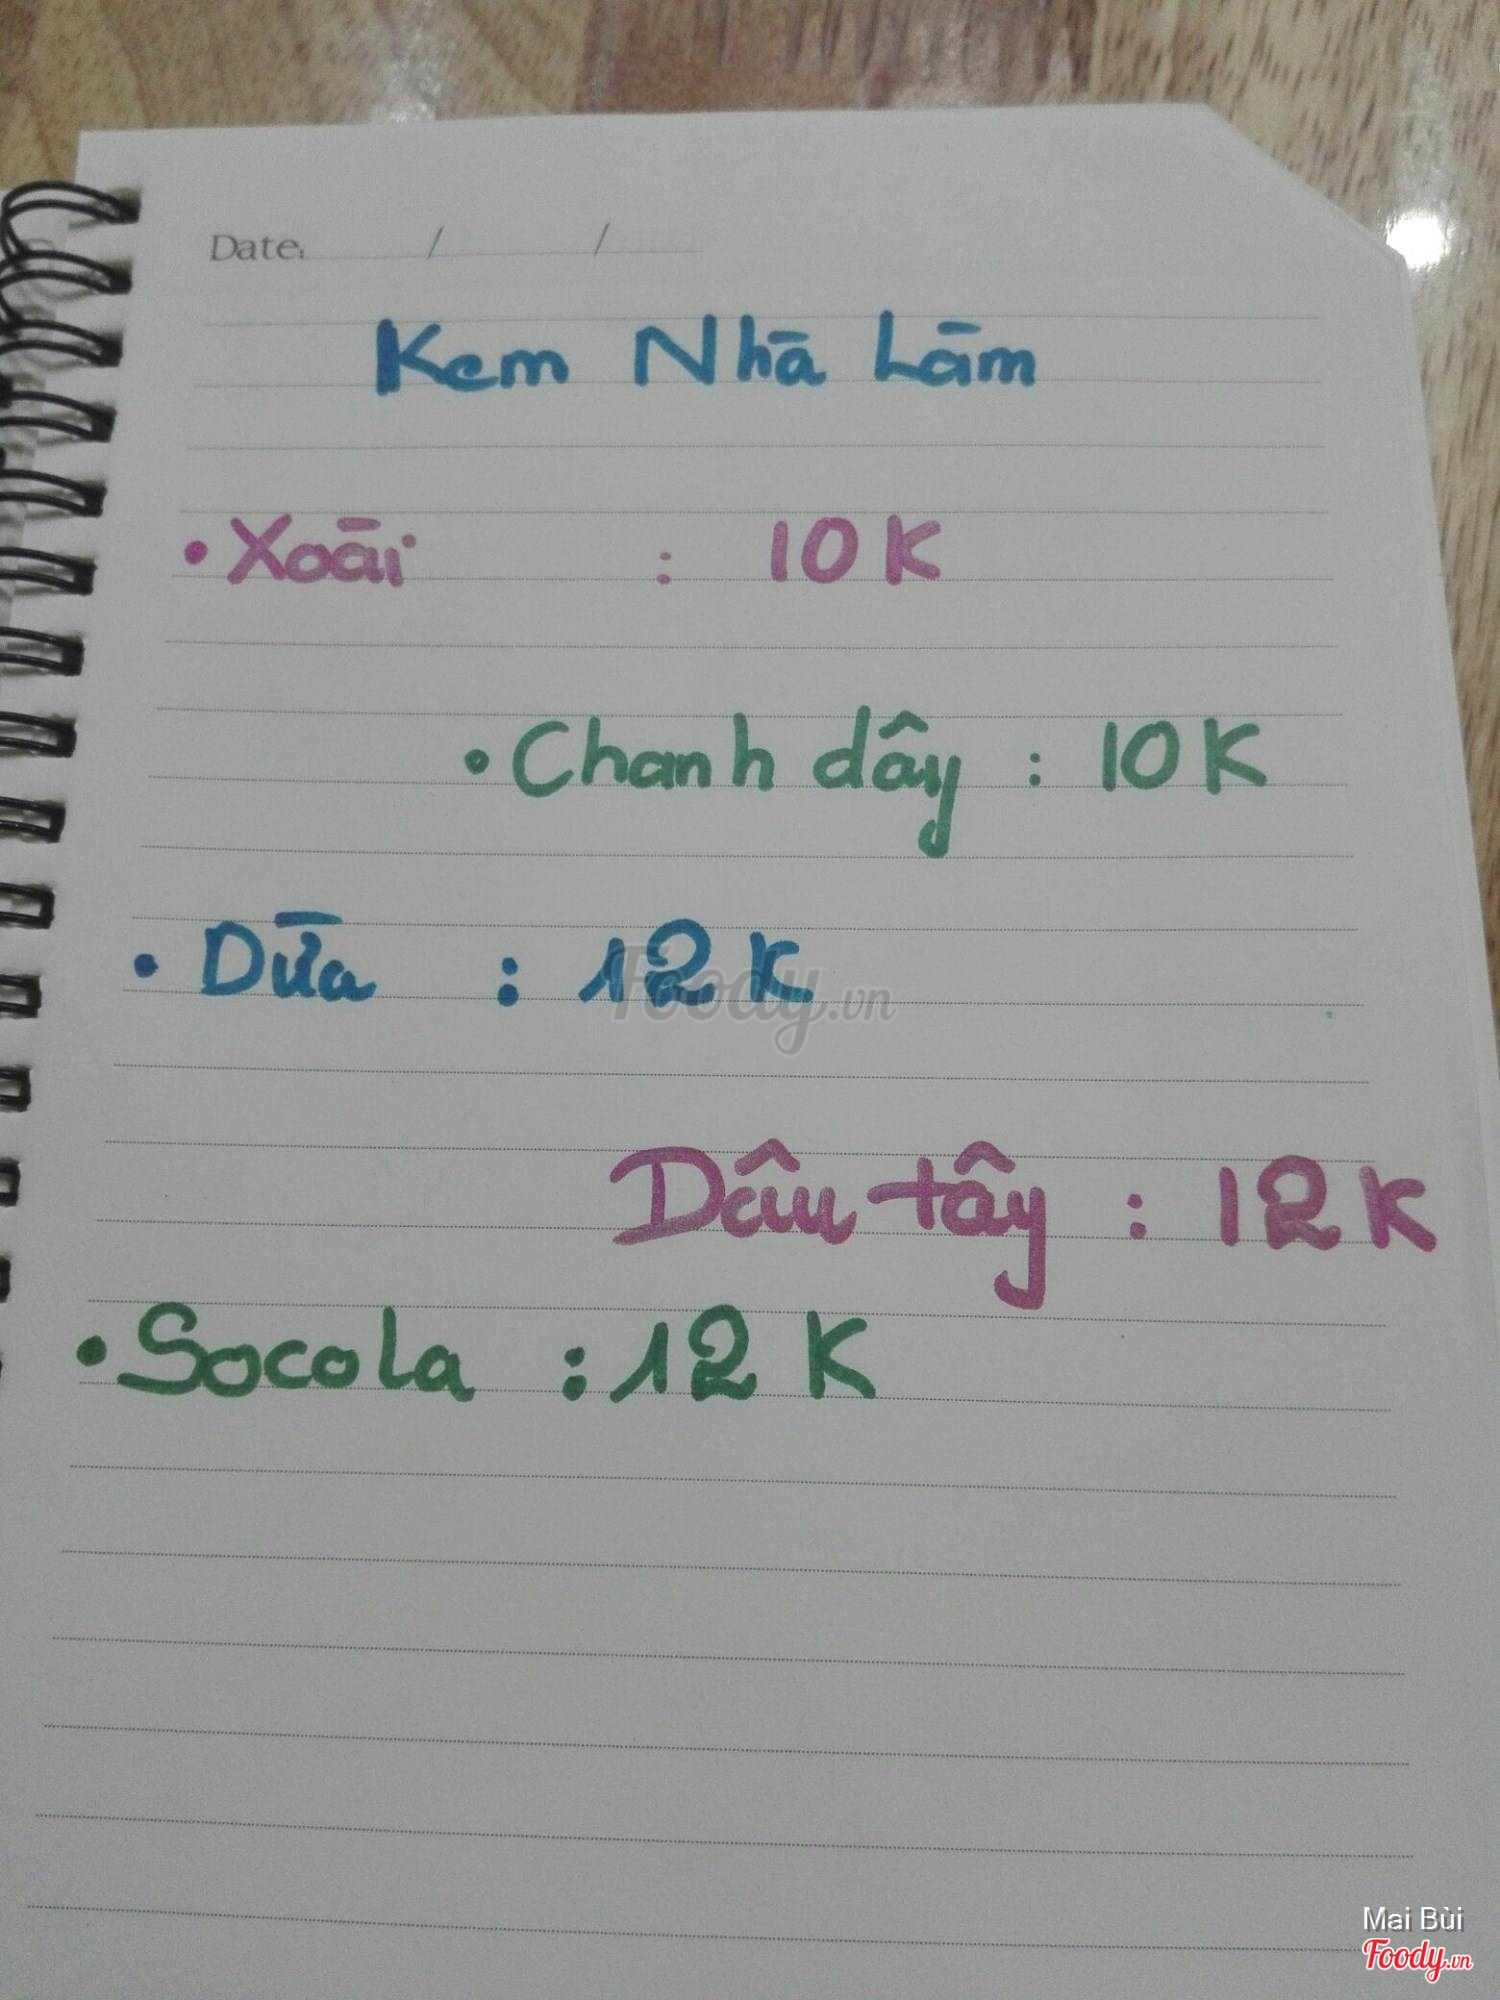 Date: / /
Kem Nhà Làm
• Xoài : 10K
• Chanh dây : 10K
• Dừa : 12K
Foody.vn
Dâu tây : 12K
• Socola : 12K
Mai Bùi
Foody.vn